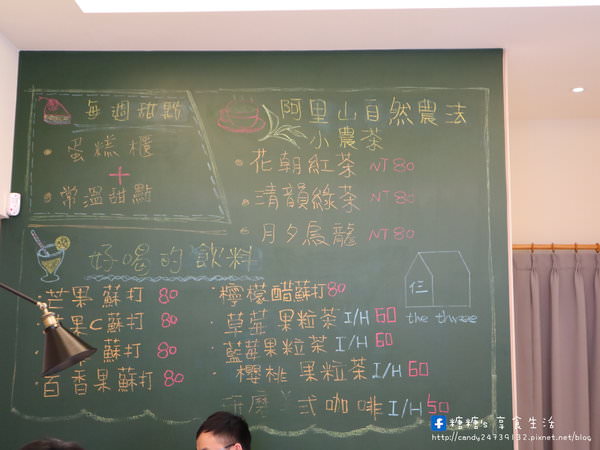 每週甜點
· 蛋糕櫃
+
· 常溫甜點
阿里山自然農法
小農茶
· 花朝紅茶 NT 80
· 清韻綠茶 NT 80
· 月夕烏龍 NT 80
好喝的飲料
仨
the three
· 芒果蘇打 80
果C蘇打 80
蘇打 80
· 百香果蘇打 80
· 檸檬醋蘇打 80
· 草莓果粒茶 I/H 60
· 藍莓果粒茶 I/H 60
· 櫻桃果粒茶 I/H 60
式咖啡 I/H 50
糖糖's 享食生活
http://candy24739132.pixnet.net/blog